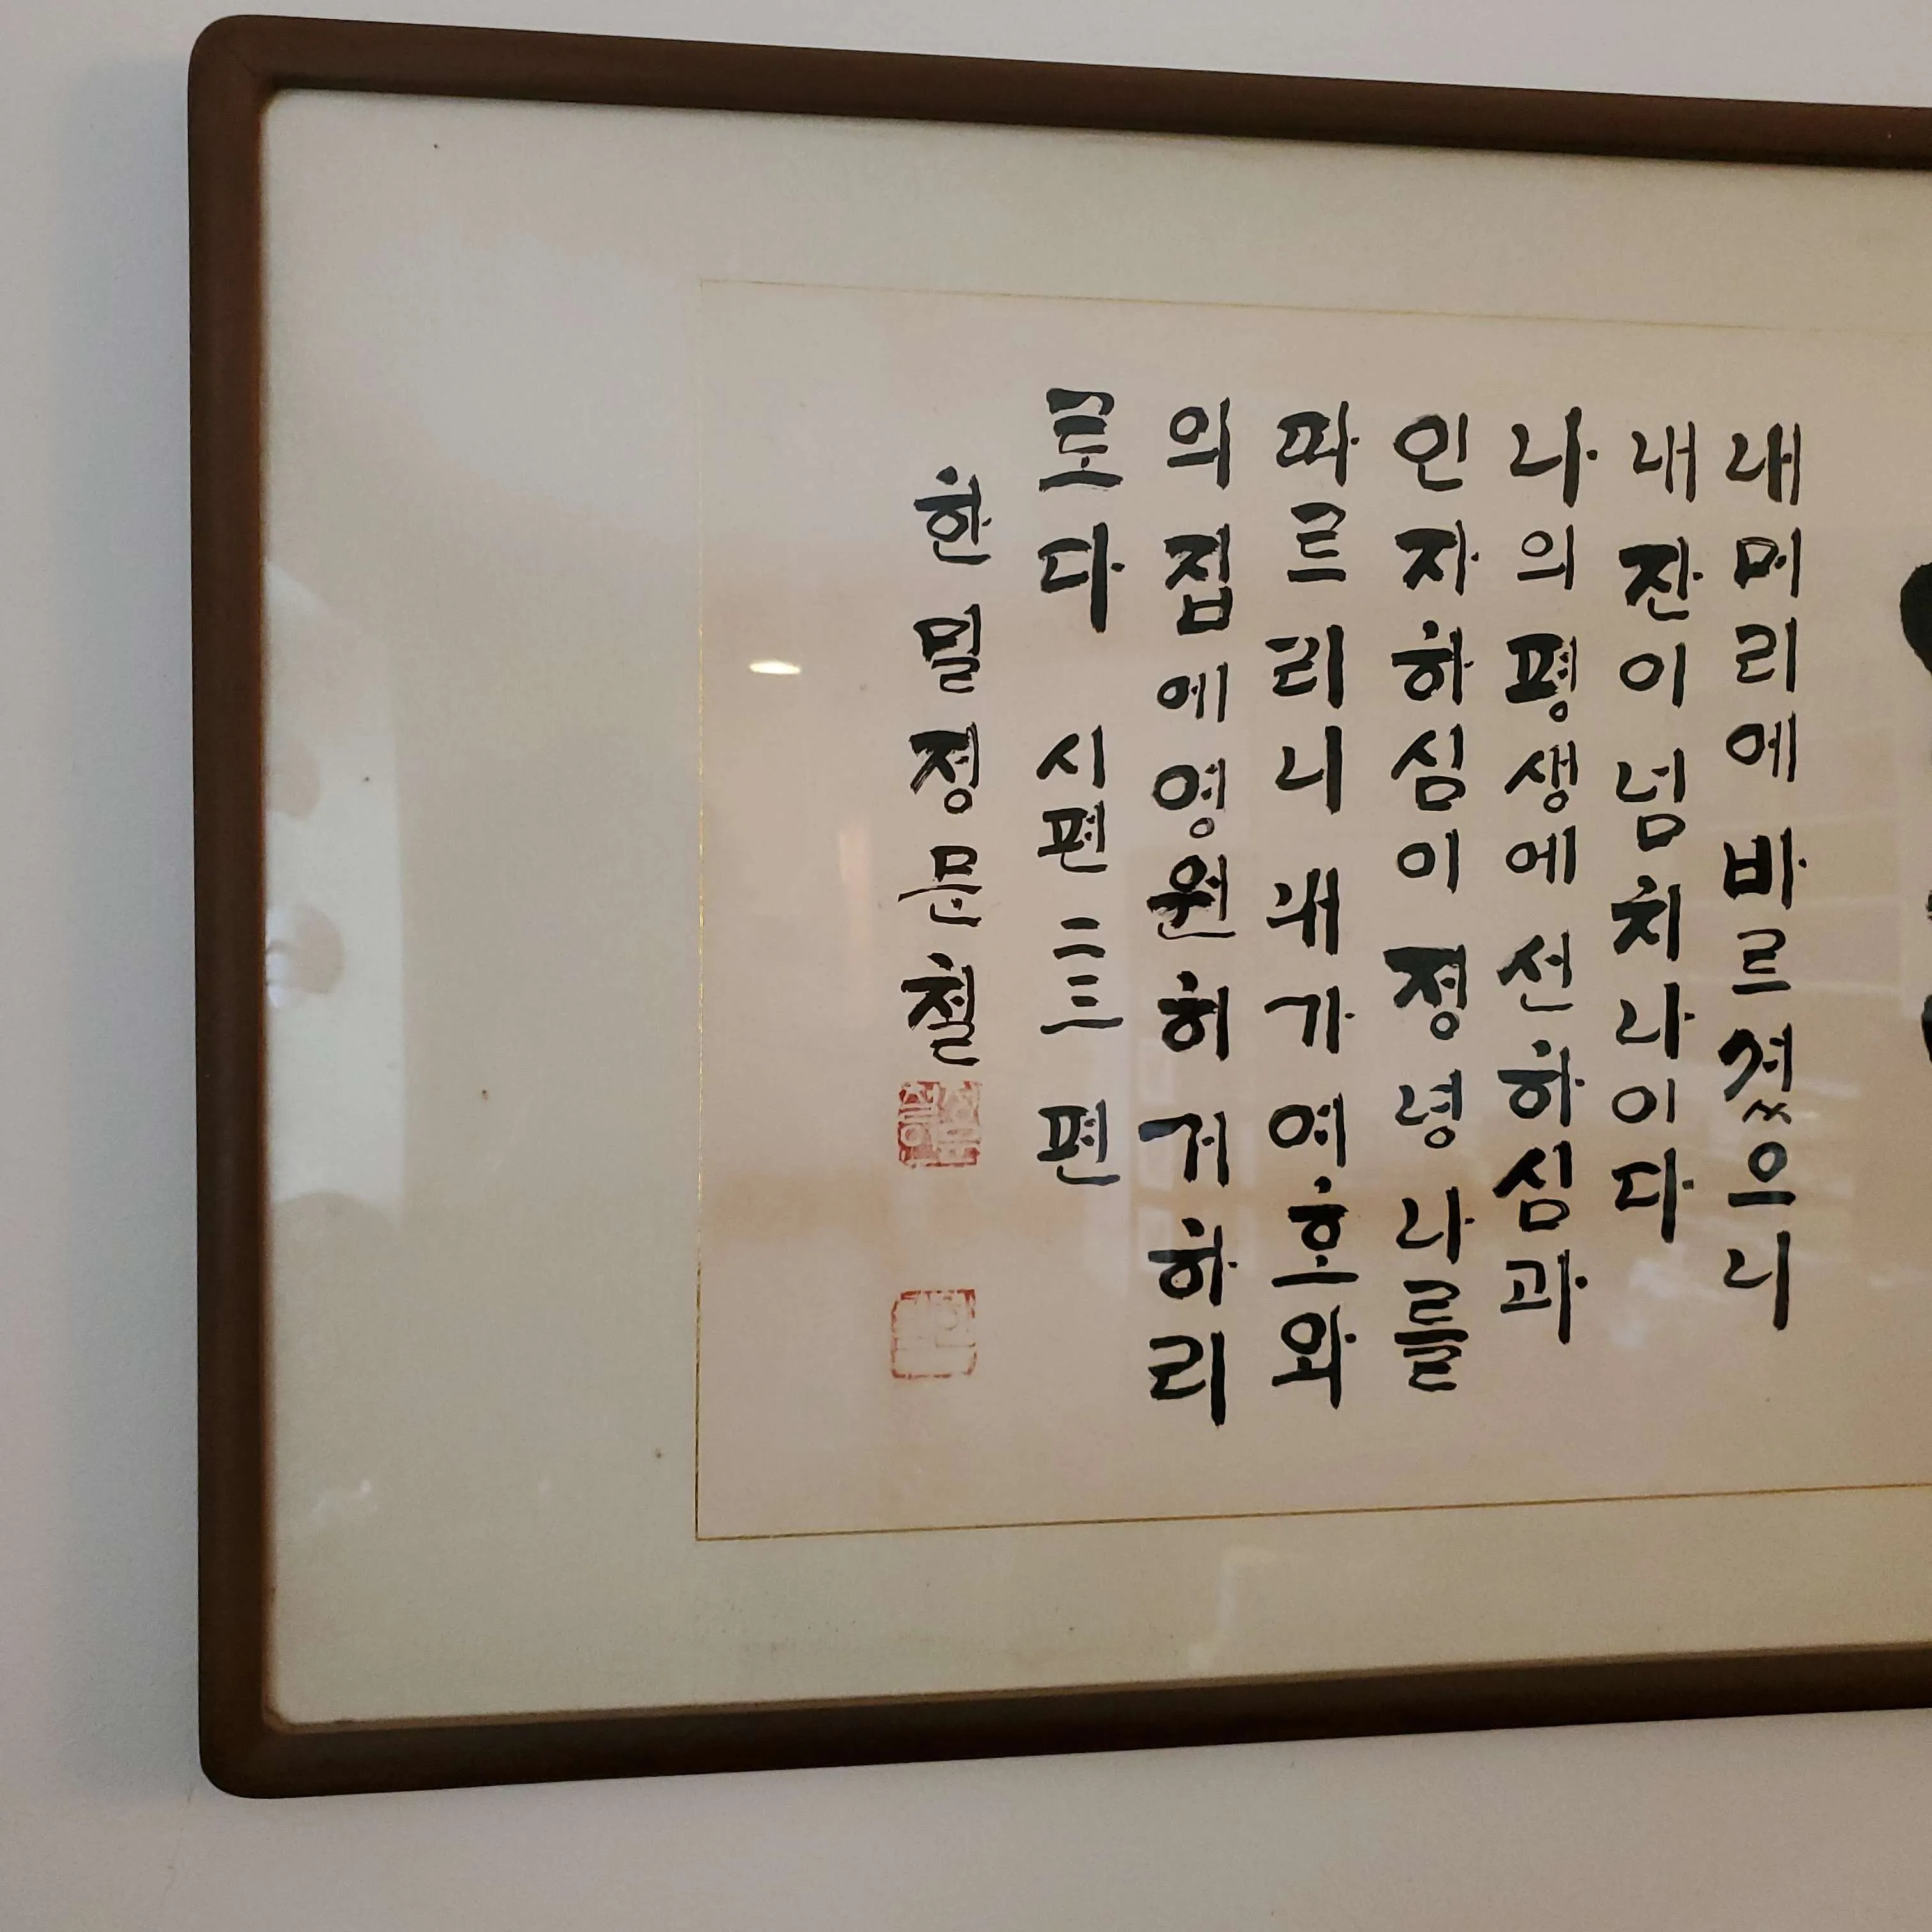 내 머리에 바르셨으니
내 잔이 넘치나이다
나의 평생에 선하심과
인자하심이 정녕 나를
따르리니 내가 여호와
의 집에 영원히 거하리
로다 시편 二三 편
한밀 정문철